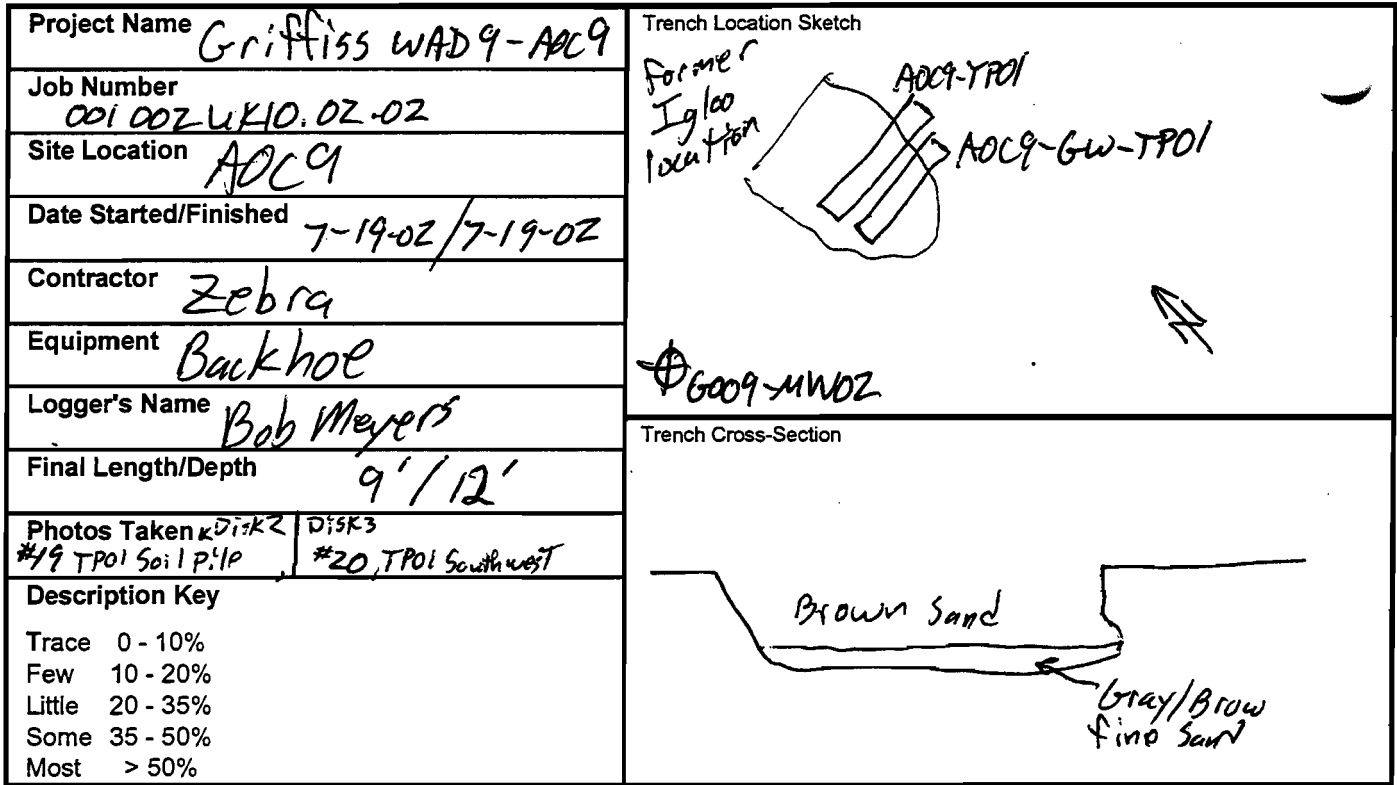 Project Name Griffiss WAD9-AOC9
Job Number
001 002 UK10.02.02
Site Location AOC9
Date Started/Finished 7-19-02/7-19-02
Contractor Zebra
Equipment Backhoe
Logger's Name Bob Meyers
Final Length/Depth 9'/12'
Photos Taken Disk2 Disk3
#19 TP01 Soil Pile, #20, TP01 Southwest
Description Key
Trace 0 - 10%
Few 10 - 20%
Little 20 - 35%
Some 35 - 50%
Most > 50%
Trench Location Sketch
Former
Igloo
location
AOC9-TP01
AOC9-GW-TP01
G009-MW02
Trench Cross-Section
Brown Sand
Gray/Brow
fine Sand